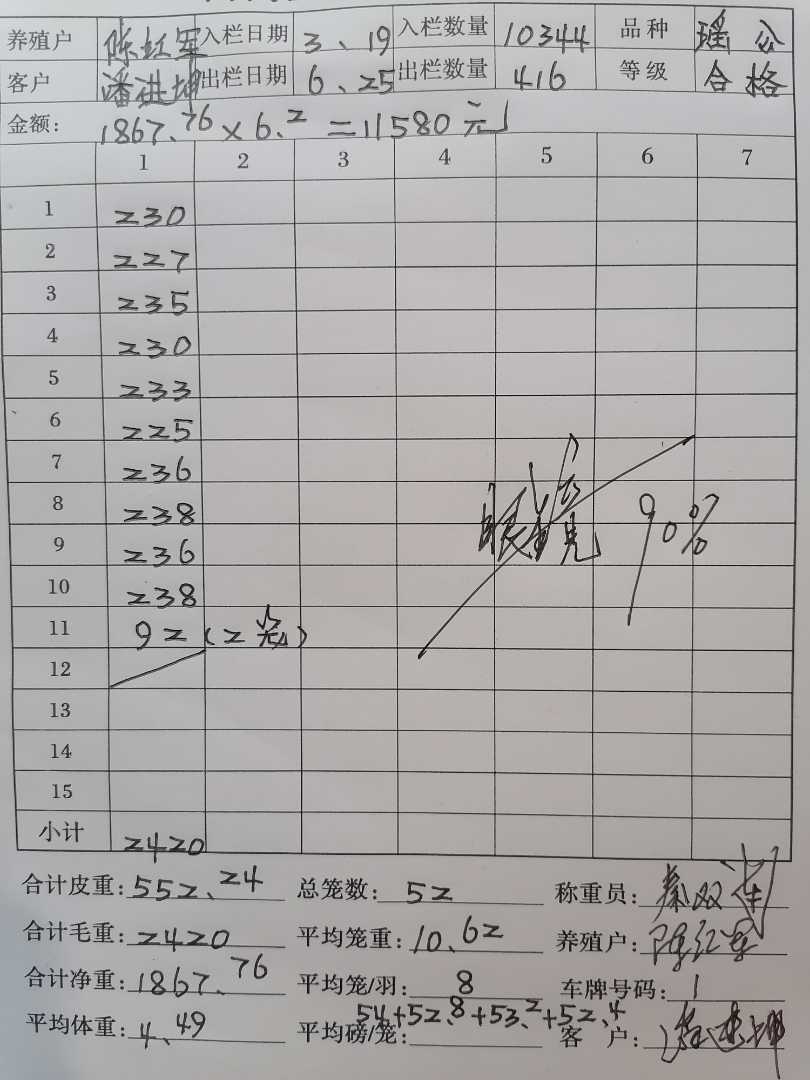 养殖户 陈红军 入栏日期 3、19 入栏数量 10344 品种 瑶公
客户 潘进坤 出栏日期 6、25 出栏数量 416 等级 合格
金额: 1867.76×6.2=11580元
1 2 3 4 5 6 7
1 230
2 227
3 235
4 230
5 233
6 225
7 236
8 238
9 236
10 238
11 92(2笼)
12
13
14
15
小计 2420
90%
合计皮重: 552.24 总笼数: 52 称重员: 秦双利
合计毛重: 2420 平均笼重: 10.62 养殖户: 陈红军
合计净重: 1867.76 平均笼/羽: 8 车牌号码: 1
平均体重: 4.49 平均磅/笼: 54+52.8+53.2+52.4 客户: 潘进坤